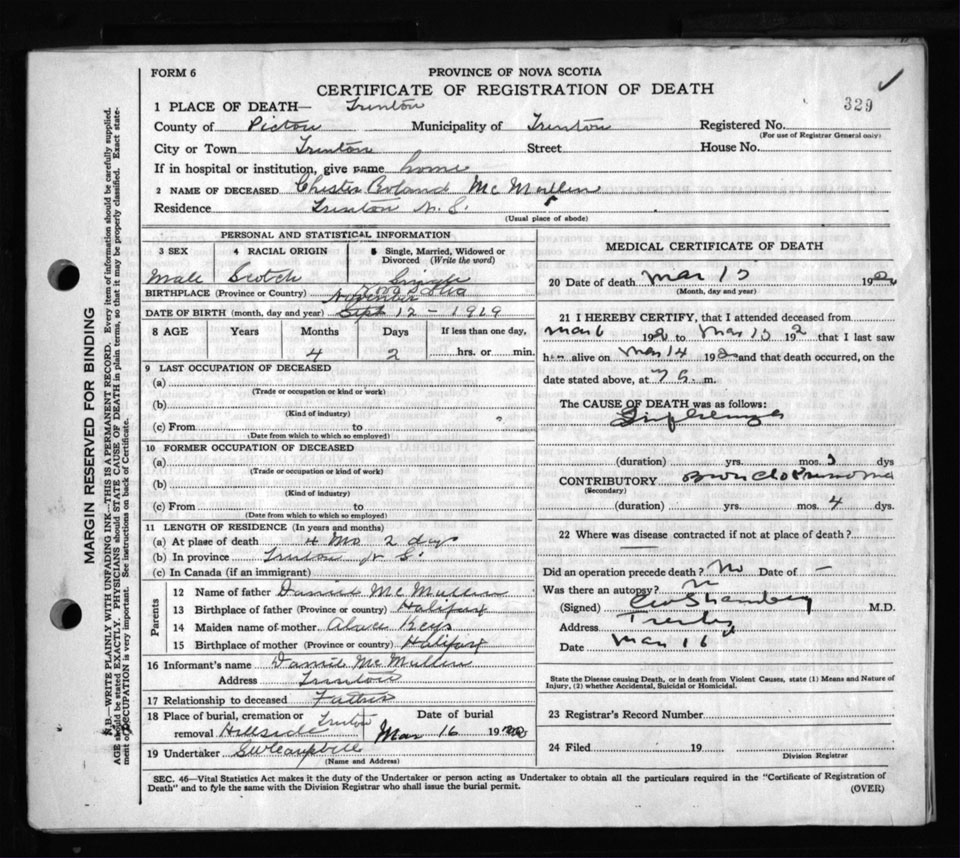 FORM 6
PROVINCE OF NOVA SCOTIA
CERTIFICATE OF REGISTRATION OF DEATH
329
1 PLACE OF DEATH— Trenton
County of Pictou Municipality of Trenton Registered No.
(For use of Registrar General only)
City or Town Trenton Street House No.
If in hospital or institution, give name home
2 NAME OF DECEASED Chester Roland Mc Mullen
Residence Trenton N. S.
(Usual place of abode)
PERSONAL AND STATISTICAL INFORMATION
3 SEX 4 RACIAL ORIGIN 5 Single, Married, Widowed or Divorced (Write the word)
Male Scotch Single
BIRTHPLACE (Province or Country) Nova Scotia
November
DATE OF BIRTH (month, day and year) Sept 12 - 1919
8 AGE Years Months Days If less than one day,
4 2 hrs. or min.
9 LAST OCCUPATION OF DECEASED
(a)
(Trade or occupation or kind of work)
(b)
(Kind of industry)
(c) From to
(Date from which to which so employed)
10 FORMER OCCUPATION OF DECEASED
(a)
(Trade or occupation or kind of work)
(b)
(Kind of industry)
(c) From to
(Date from which to which so employed)
11 LENGTH OF RESIDENCE (In years and months)
(a) At place of death 4 Mo 2 days
(b) In province Trenton N S.
(c) In Canada (if an immigrant)
Parents
12 Name of father Daniel Mc Mullen
13 Birthplace of father (Province or country) Halifax
14 Maiden name of mother Keys
15 Birthplace of mother (Province or country) Halifax
16 Informant's name Daniel Mc Mullen
Address Trenton
17 Relationship to deceased Father
18 Place of burial, cremation or removal Hillside Trenton Date of burial Mar 16 1920
19 Undertaker Campbell
(Name and Address)
MEDICAL CERTIFICATE OF DEATH
20 Date of death Mar 15 19
(Month, day and year)
21 I HEREBY CERTIFY, that I attended deceased from
Mar 6 19 to Mar 15 19 that I last saw
him alive on Mar 14 19 and that death occurred, on the
date stated above, at 7 m.
The CAUSE OF DEATH was as follows:
Influenza
(duration) yrs. mos. dys
CONTRIBUTORY Broncho Pneumonia
(Secondary)
(duration) yrs. mos. 4 dys.
22 Where was disease contracted if not at place of death?
Did an operation precede death? No Date of —
Was there an autopsy? No
(Signed) M.D.
Address Trenton
Date Mar 16
State the Disease causing Death, or in death from Violent Causes, state (1) Means and Nature of
Injury, (2) whether Accidental, Suicidal or Homicidal.
23 Registrar's Record Number
24 Filed 19
Division Registrar
SEC. 46—Vital Statistics Act makes it the duty of the Undertaker or person acting as Undertaker to obtain all the particulars required in the "Certificate of Registration of
Death" and to fyle the same with the Division Registrar who shall issue the burial permit.
(OVER)
MARGIN RESERVED FOR BINDING
N.B.—WRITE PLAINLY WITH UNFADING INK—THIS IS A PERMANENT RECORD. Every item of information should be carefully supplied.
AGE should be stated EXACTLY. PHYSICIANS should STATE CAUSE OF DEATH in plain terms, so that it may be properly classified. Exact state-
ment of OCCUPATION is very important. See instructions on back of Certificate.